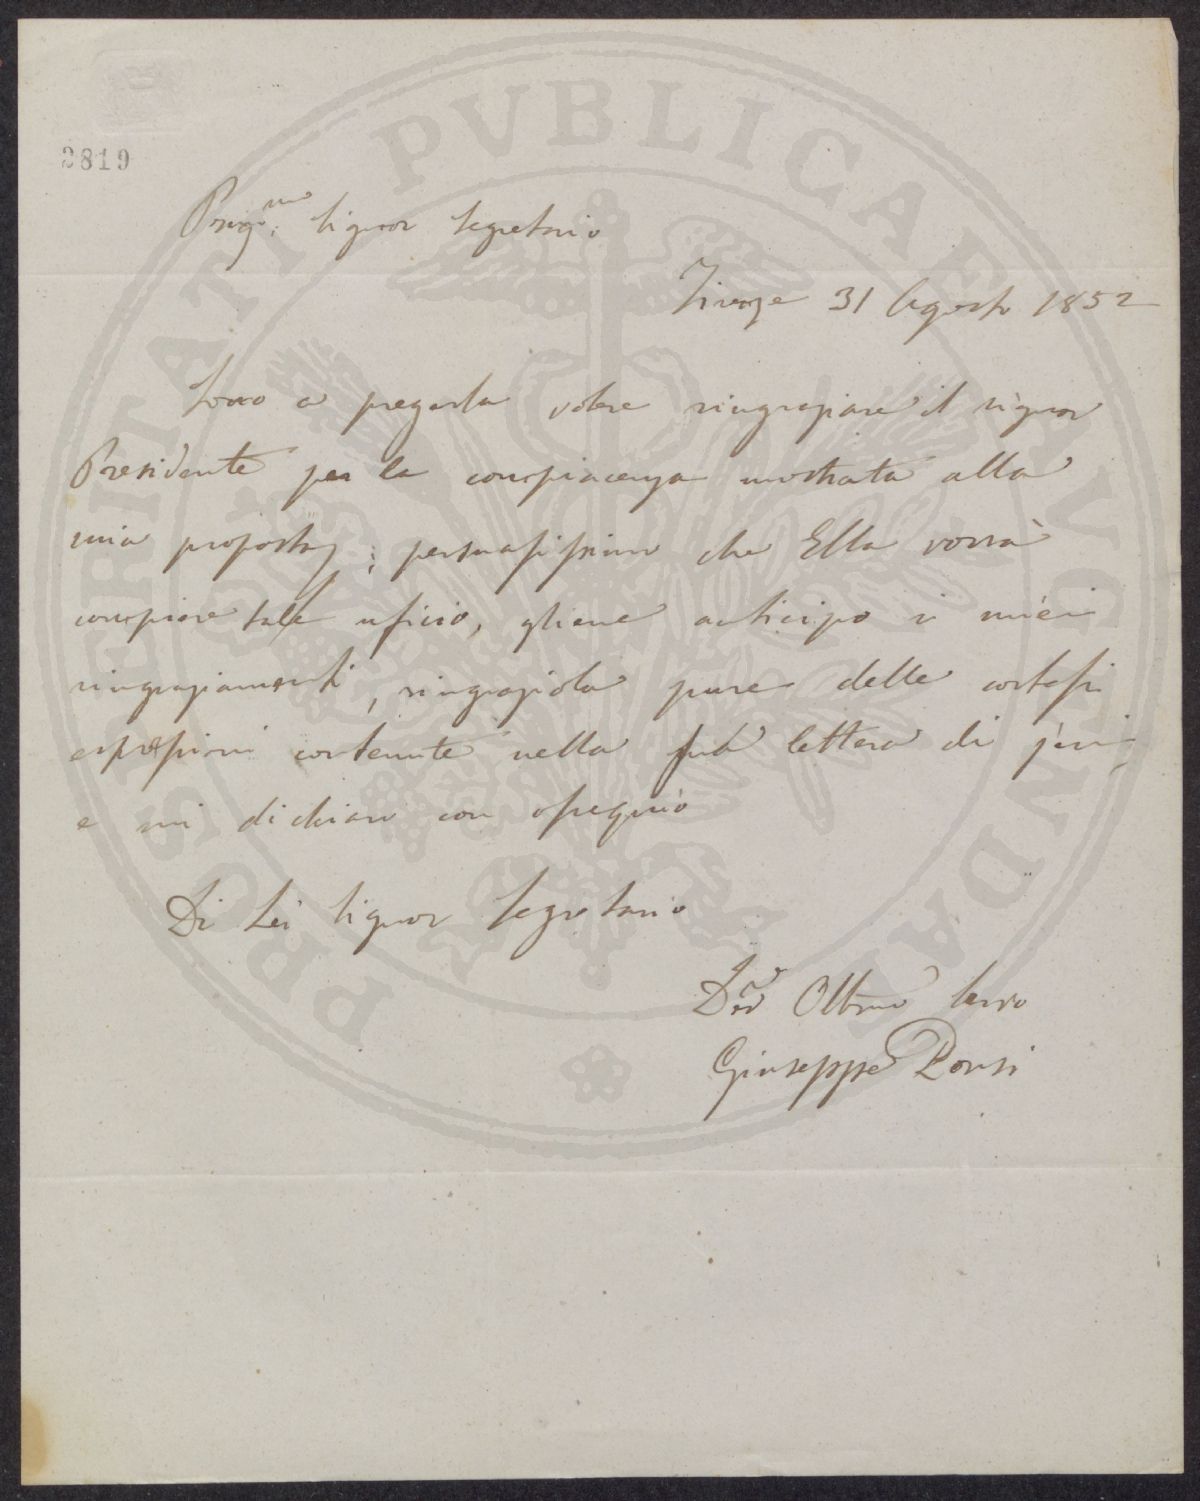 2819
Preg.mo Signor Segretario
Firenze 31 Agosto 1852
Sono a pregarla volere ringraziare il signor
Presidente per la compiacenza mostrata alla
mia proposta; persuasissimo che Ella vorrà
compiere tale uficio, gliene anticipo i miei
ringraziamenti, ringraziola pure delle cortesi
espressioni contenute nella sua lettera di jeri,
e mi dichiaro con ossequio
Di Lei Signor Segretario
Dev Obbmo Servo
Giuseppe Ponsi
PROSPERITATI PVBLICAE AVGENDAE